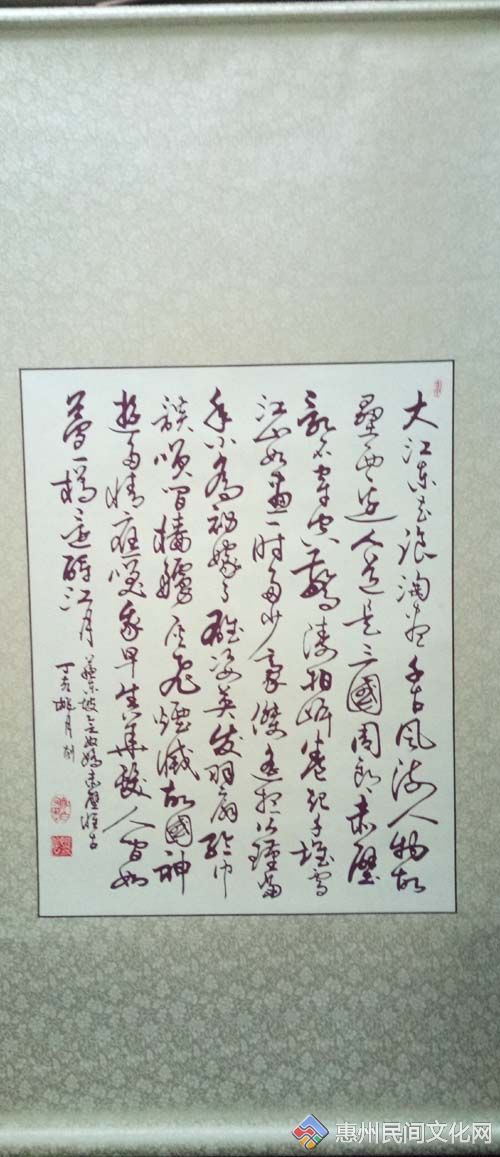 大江东去浪淘尽千古风流人物故
壘西边人道是三國周郎赤壁
乱石穿空驚涛拍岸卷起千堆雪
江山如画一时多少豪傑遥想公瑾当
年小乔初嫁了雄姿英发羽扇纶巾
談笑间樯艣灰飞煙滅故國神
遊多情应笑我早生華髮人间如
夢一樽还酹江月
苏东坡念奴娇赤壁怀古
丁亥
惠州民间文化网